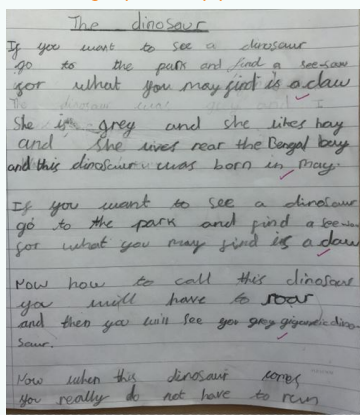 The dinosaur
If you want to see a dinosaur
go to the park and find a see-saw
for what you may find is a claw
She is grey and she likes hay
and she lives near the Bengal bay
and this dinosaur was born in may.
If you want to see a dinosaur
go to the park and find a see-saw
for what you may find is a claw
Now how to call this dinosaur
you will have to roar
and then you will see you grey gigantic dino-
saur.
Now when this dinosaur comes
you really do not have to run